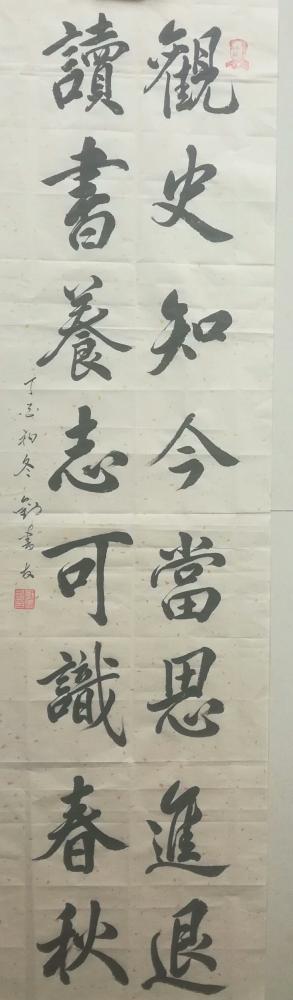 觀史知今當思進退
讀書養志可識春秋
丁亥初冬劉書友